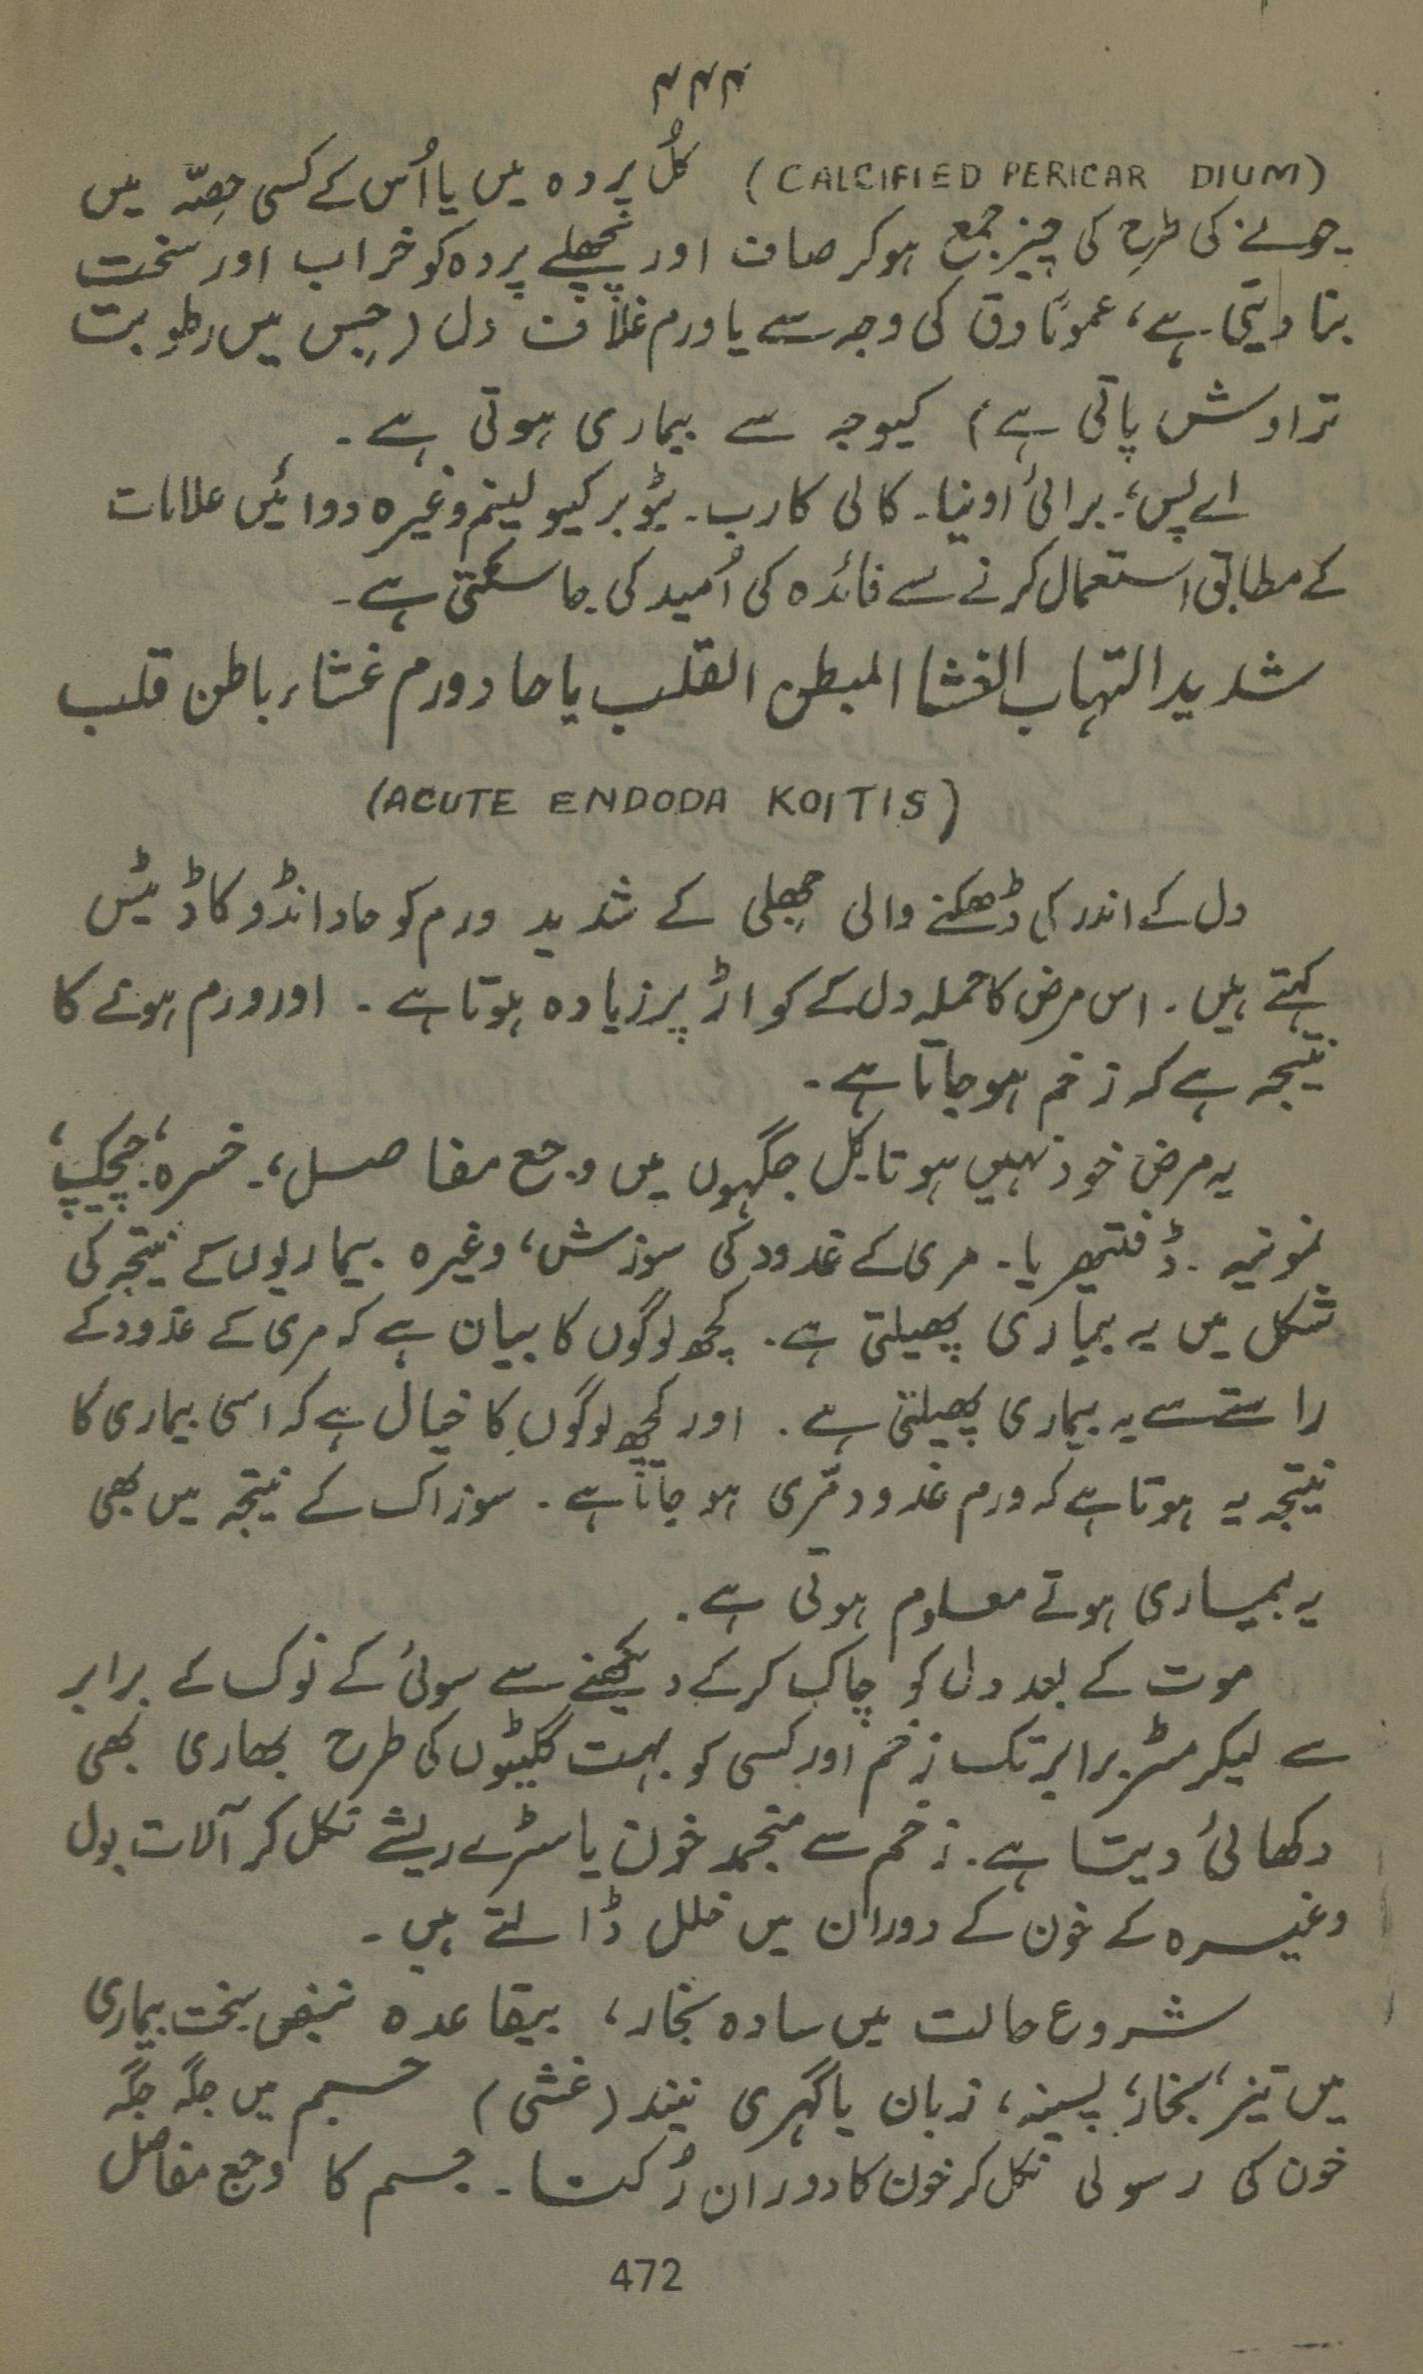 ۴۴۴
(CALCIFIED PERICAR DIUM) کُل پردہ میں یا اُس کے کسی حِصّہ میں
چونے کی طرح کی چیز جمع ہوکر صاف اور نچھلے پردہ کو خراب اور سخت
بنا دیتی ہے، عموماً دق کی وجہ سے یا ورم غلاف دل (جِس میں رطوبت
تراوش پاتی ہے) کیوجہ سے بیماری ہوتی ہے۔
اے پس، برائی اونیا۔ کالی کارب۔ ٹیوبرکیولینم وغیرہ دوائیں علامات
کے مطابق استعمال کرنے سے فائدہ کی اُمید کی جاسکتی ہے۔
شدید التہاب الغشا المبطن القلب یا حاد ورم غشاء باطن قلب
(ACUTE ENDODA KOITIS)
دل کے اندر کی ڈھکنے والی جھِلی کے شدید ورم کو حاد انڈوکاڈیٹس
کہتے ہیں۔ اس مرض کا حملہ دل کے کواڑ پر زیادہ ہوتا ہے۔ اور ورم ہونے کا
نتیجہ ہے کہ زخم ہوجاتا ہے۔
یہ مرض خود نہیں ہوتا کل جگہوں میں وجع مفاصل،۔ خسرہ، چیچک،
نمونیہ۔ ڈفتھیریا۔ مری کے غدود کی سوزش، وغیرہ بیماریوں کے نتیجہ کی
شکل میں یہ بیماری پھیلتی ہے۔ کچھ لوگوں کا بیان ہے کہ مری کے غدود کے
راستے سے یہ بیماری پھیلتی ہے۔ اور کچھ لوگوں کا خیال ہے کہ اسی بیماری کا
نتیجہ یہ ہوتا ہے کہ ورم غدود مری ہو جاتا ہے۔ سوزاک کے نتیجہ میں بھی
یہ بیماری ہوتے معلوم ہوتی ہے۔
موت کے بعد دل کو چاک کرکے دیکھنے سے سوئی کے نوک کے برابر
سے لیکر مٹر برابر تک زخم اور کسی کو بہت گلٹیوں کی طرح بھاری بھی
دکھائی دیتا ہے۔ زخم سے منجمد خون یا سڑے ریشے نکل کر آلات بول
وغیرہ کے خون کے دوران میں خلل ڈالتے ہیں۔
شروع حالت میں سادہ بخار، بیقاعدہ نبض سخت بیماری
میں تیز بخار، پسینہ، زبان یا گہری نیند (غشی) جسم میں جگہ جگہ
خون کی رسولی نکل کر خون کا دوران رُکتا۔ جسم کا وجع مفاصل
472